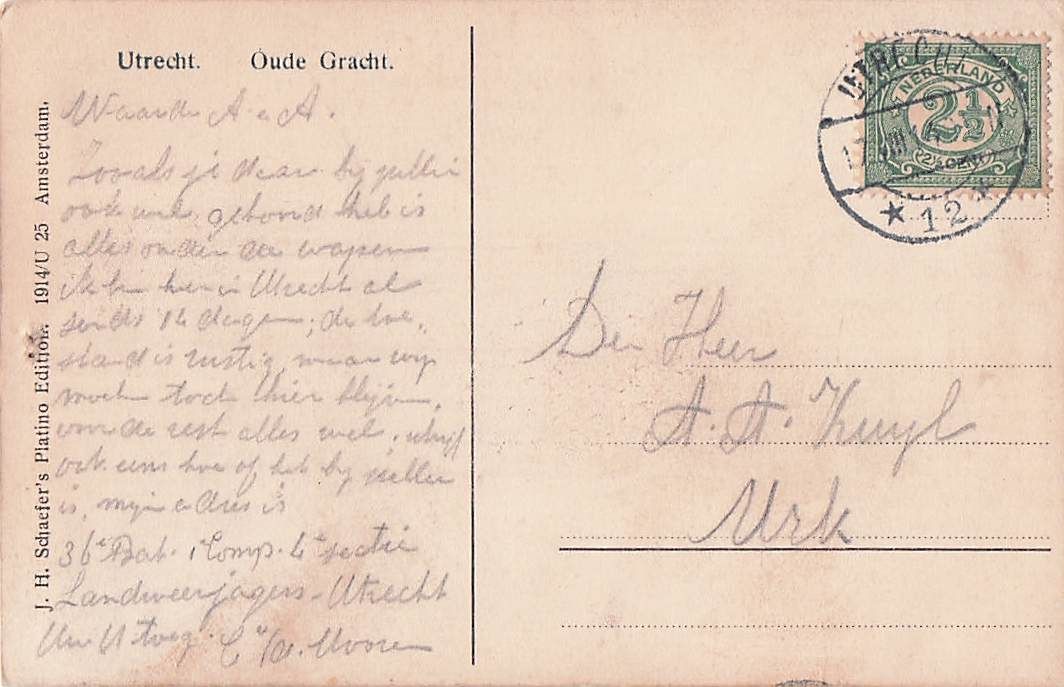 Utrecht. Oude Gracht.
J. H. Schaefer's Platino Edition. 1914/U 25 Amsterdam.
Waarde A e A.
Zooals je daar bij jullie
ook wel gehoord heb is
alles onder de wapen
ik ben hier in Utrecht al
sinds 14 dagen, de toe-
stand is rustig, maar wij
moeten toch hier blijven,
voor de rest alles wel, schrijf
ook eens hoe of het bij jullie
is, mijn adres is
36e Bat. 1 Comp. 4e sectie
Landweerjagers - Utrecht
UTRECHT
12
NEDERLAND
2½
2½ CENT
Den Heer
A. A. Kuyl
Urk